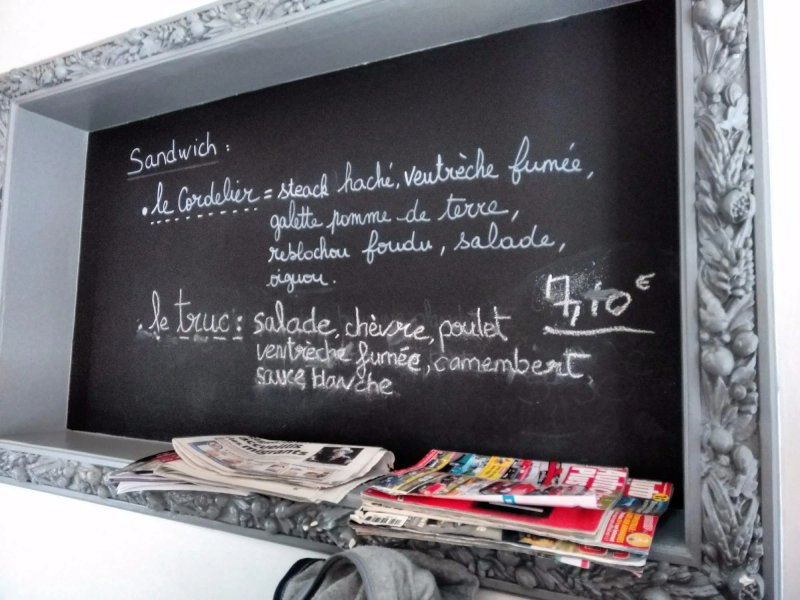 Sandwich :
• le Cordelier = steack haché, ventrèche fumée,
galette pomme de terre,
reblochon fondu, salade,
oignon.
7,10€
• le truc : salade, chèvre, poulet
ventrèche fumée, camembert,
sauce blanche
migrants